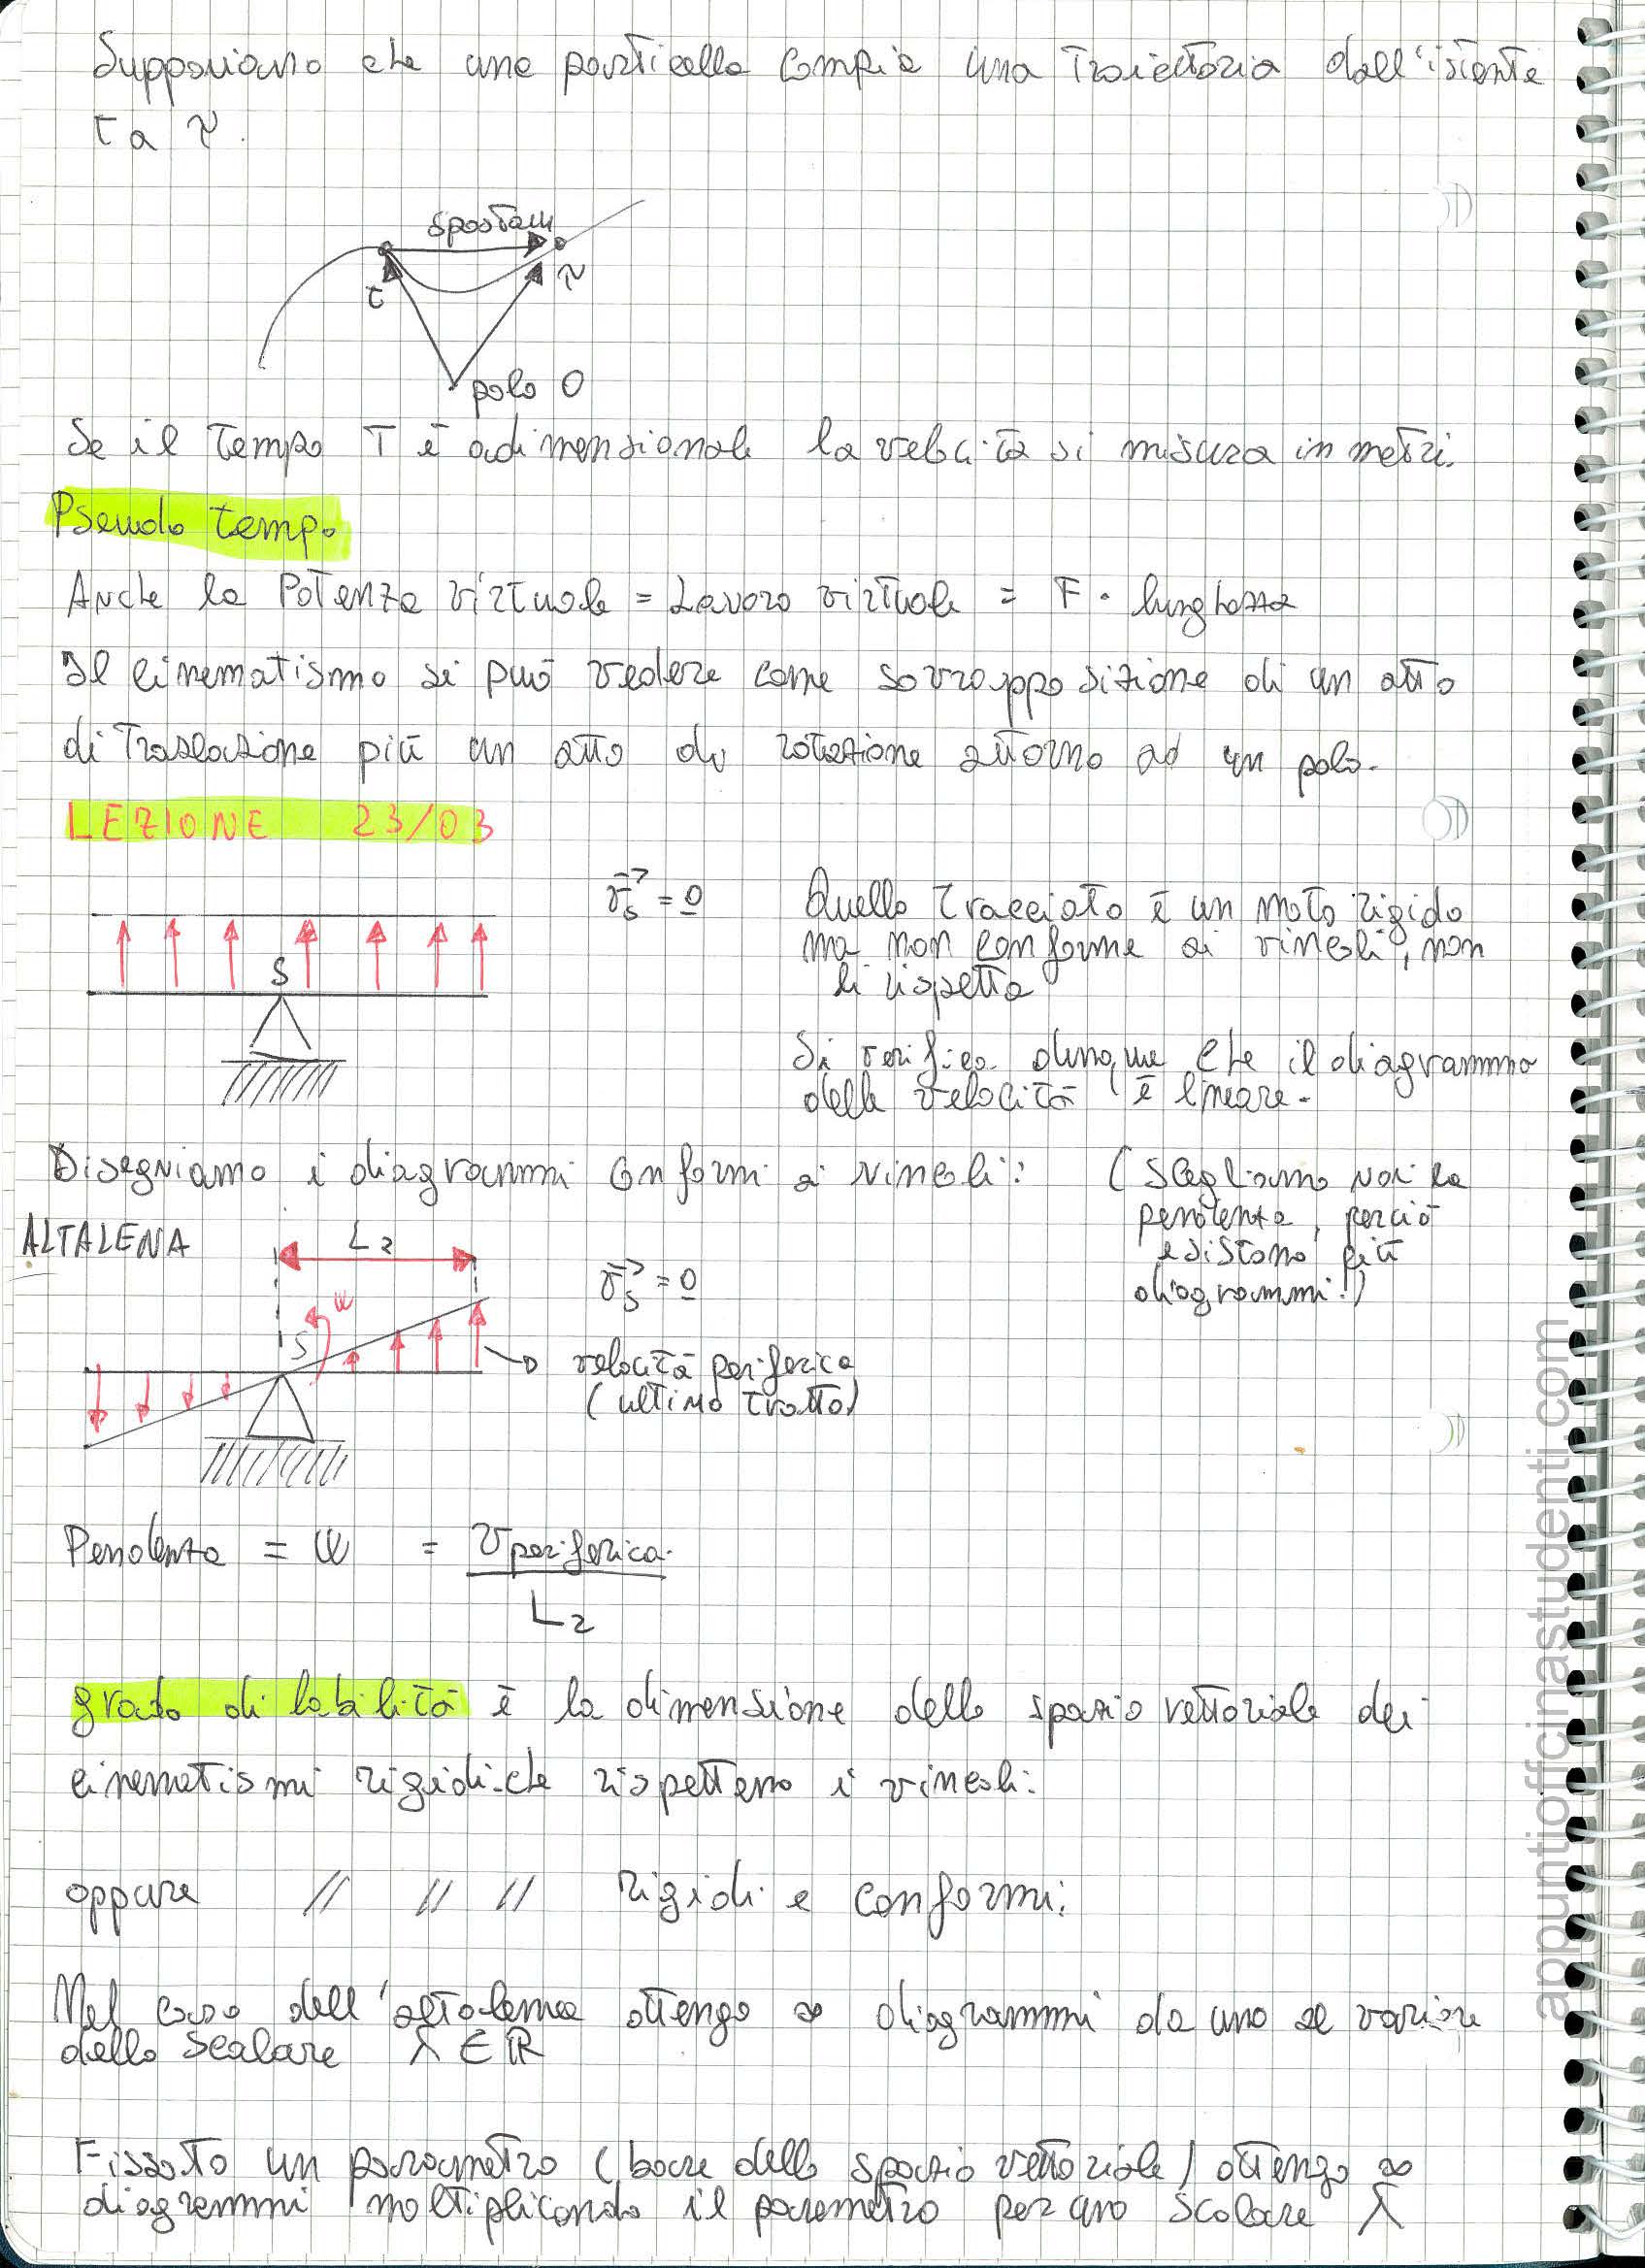 Supponiamo che una particella compia una traiettoria dall'istante
t a τ.
spostam
t
τ
polo O
Se il tempo T è adimensionale la velocità si misura in metri.
Pseudo tempo
Anche la Potenza virtuale = Lavoro virtuale = F · lunghezza
Il cinematismo si può vedere come sovrapposizione di un atto
di Traslazione più un atto di rotazione attorno ad un polo.
LEZIONE 23/03
S
v⃗s = 0
Quello Tracciato è un moto rigido
ma non conforme ai vincoli, non
li rispetta
Si verifica dunque che il diagramma
delle velocità è lineare.
Disegniamo i diagrammi conformi ai vincoli:
(Scegliamo noi la
pendenza, perciò
esistono più
diagrammi!)
ALTALENA
L2
ω
S
v⃗s = 0
velocità periferica
(ultimo tratto)
Pendenza = ω = v periferica / L2
grado di labilità è la dimensione dello spazio vettoriale dei
cinematismi rigidi che rispettano i vincoli:
oppure // // // rigidi e conformi.
Nel caso dell'altalena ottengo ∞ diagrammi da uno al variare
dello Scalare λ ∈ ℝ
Fissato un parametro (base dello spazio vettoriale) ottengo ∞
diagrammi moltiplicando il parametro per uno scalare λ
appuntiofficinastudenti.com